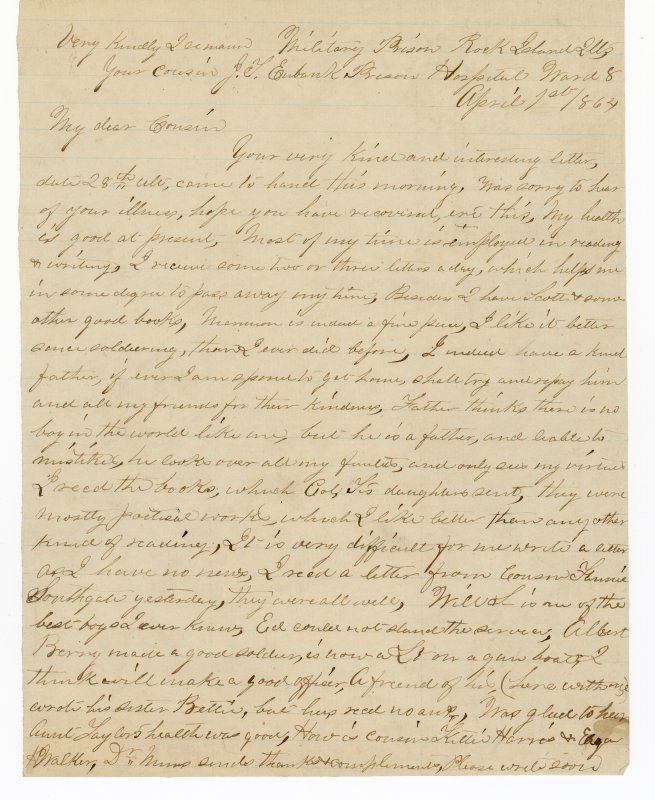 Very kindly I remain Military Prison Rock Island Ills
Your cousin J. T. Eubank Prison Hospital Ward 8
April 1st 1864
My dear Cousin
Your very kind and interesting letter,
date 28th ult, came to hand this morning, Was sorry to hear
of your illness, hope you have recovered, ere this, My health
is good at present, Most of my time is employed in reading
& writing, I receive some two or three letters a day, which helps me
in some degree to pass away my time, Besides I have Scott & some
other good books, Marmion is indeed a fine piece, I like it better
since soldiering, than I ever did before, I indeed have a kind
father, if ever I am spared to get home, shall try and repay him
and all my friends for their kindness, Father thinks there is no
boy in the world like me, but he is a father, and liable to
mistakes, he look over all my faults, and only sees my virtue
I recd the books, which Col, K's daughters sent, they were
mostly poetical works, which I like better than any other
kind of reading, It is very difficult for me write a letter
as I have no news, I read a letter from Cousin Fannie
Southgate yesterday, they were all well, Will S is one of the
best boys I ever knew, Ed could not stand the service, Albert
Berry made a good soldier, is now a Lt on a gun boat, I
think will make a good officer, A friend of his, (here with me
wrote his sister Bettie, but has recd no ansr, Was glad to hear
Aunt Taylor's health was good, How is cousin Kittie Harris &
Walker, Dr Mims sends thanks & compliments, Please write soon